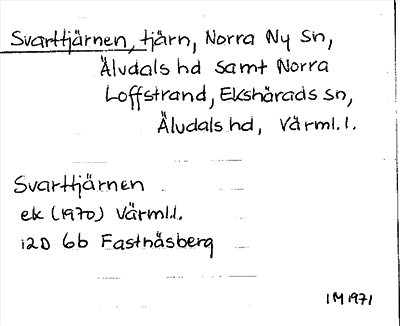 Svarttjärnen, tjärn, Norra Ny Sn,
Älvdals hd samt Norra
Loffstrand, Ekshärads sn,
Älvdals hd, Värml. l.
Svarttjärnen
ek (1970) Värml.l.
12D 6b Fastnäsberg
IM 1971